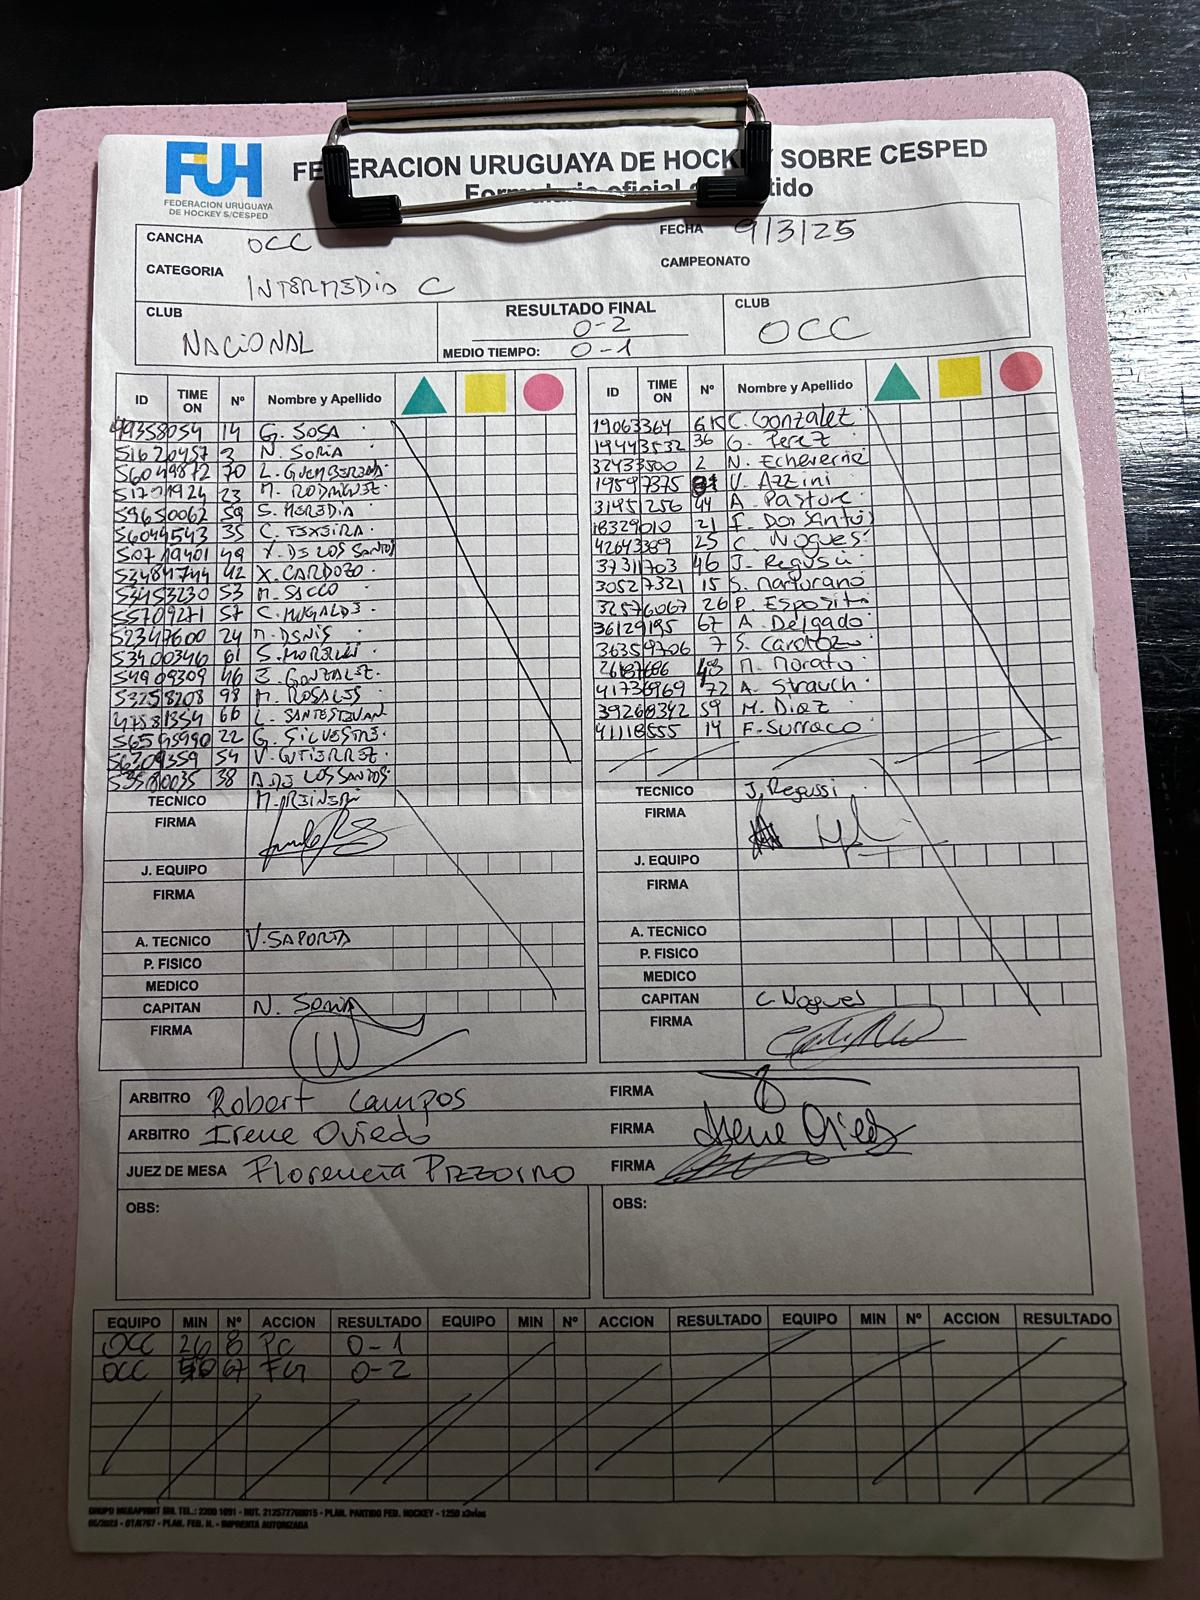 FUH
FEDERACION URUGUAYA
DE HOCKEY S/CESPED
FEDERACION URUGUAYA DE HOCKEY SOBRE CESPED
Formulario oficial
CANCHA OCC FECHA 9/3/25
CATEGORIA INTERMEDIO C CAMPEONATO
CLUB NACIONAL
RESULTADO FINAL 0-2
MEDIO TIEMPO: 0-1
CLUB OCC
ID TIME ON Nº Nombre y Apellido
49358054 14 G. SOSA
51620457 3 N. SORIA
56049872 70
51701924 23 M. RODRIGUEZ
59650062 59 S. HEREDIA
56044543 35 C. TEXEIRA
50719401 49 X. DE LOS SANTOS
53484744 42 X. CARDOZO
53453230 53 M. SACCO
55709271 57 C. MUGALDE
52347600 24 M. DENIS
53400346 61 S. MORELLI
54909309 46 E. GONZALEZ
53258208 98 M. ROSALES
47581354 66 L. SANTESTEVAN
56595990 22 G. SILVESTRE
56309359 54 V. GUTIERREZ
53580035 38 A. DE LOS SANTOS
TECNICO M. REINERI
FIRMA
J. EQUIPO
FIRMA
A. TECNICO V. SAPORTA
P. FISICO
MEDICO
CAPITAN N. Soria
FIRMA
ID TIME ON Nº Nombre y Apellido
19063364 GK C. Gonzalez
19443532 36 G. Perez
32433500 2 N. Echeverria
19597375 V. Azzini
31951256 44 A. Pastore
18329010 21 F. Dos Santos
42643389 25 C. Nogues
37311703 46 J. Regusci
30527321 15 S. Marturano
32576067 26 P. Esposito
36129195 67 A. Delgado
36359706 7 S. Cardozo
26187686 48 M. Morato
41736969 72 A. Strauch
39268342 59 M. Diaz
41118555 14 F. Surraco
TECNICO J. Regussi
FIRMA
J. EQUIPO
FIRMA
A. TECNICO
P. FISICO
MEDICO
CAPITAN C. Nogues
FIRMA
ARBITRO Robert Campos FIRMA
ARBITRO Irene Oviedo FIRMA Irene Oviedo
JUEZ DE MESA Florencia Pizzorno FIRMA
OBS: OBS:
EQUIPO MIN Nº ACCION RESULTADO EQUIPO MIN Nº ACCION RESULTADO EQUIPO MIN Nº ACCION RESULTADO
OCC 26 8 PC 0-1
OCC 50 67 FG 0-2
GRUPO MEGAPRINT SRL TEL.: 2200 1091 - RUT. 212572760015 - PLAN. PARTIDO FED. HOCKEY - 1250 x3vías
05/2023 - - PLAN. FED. H. - IMPRENTA AUTORIZADA